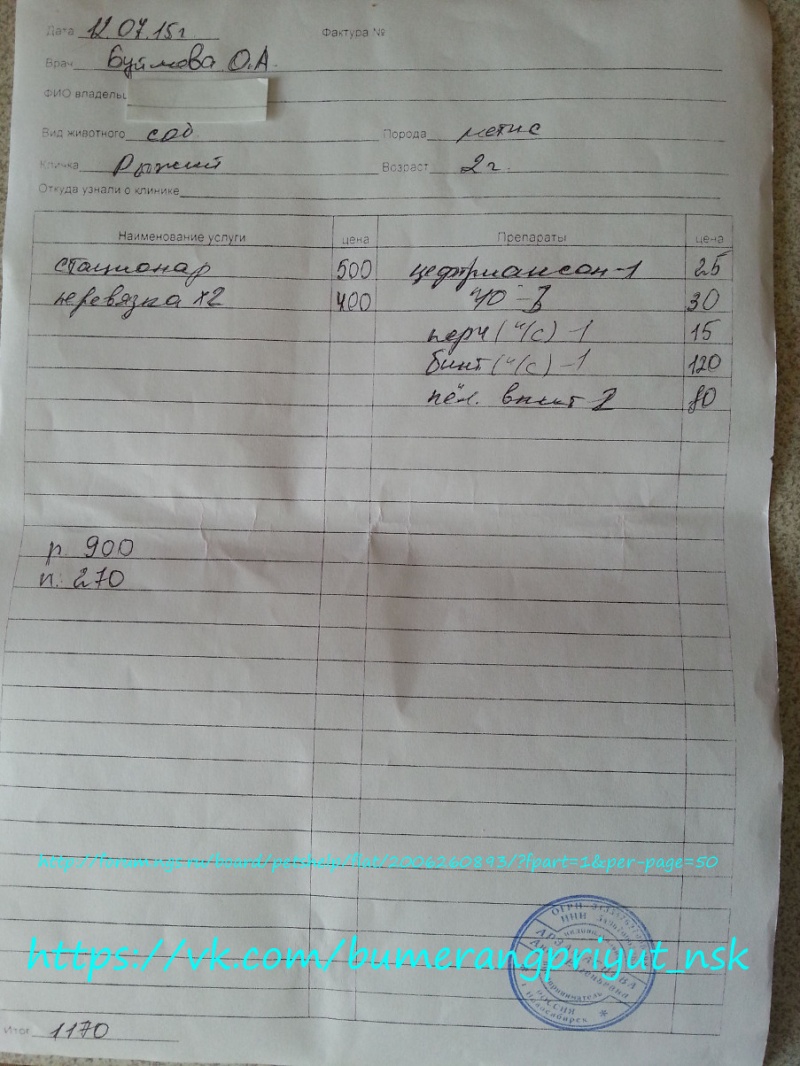 Дата 12.07.15г Фактура №
Врач Буймова О.А.
ФИО владельц
Вид животного соб. Порода метис
Кличка Рыжий Возраст 2г.
Откуда узнали о клинике
Наименование услуги цена Препараты цена
стационар 500 цефтриаксон-1 25
перевязка х2 400 ч10-3 30
перч (н/с) -1 15
бинт (н/с) -1 120
пел. впит 2 80
р. 900
п. 270
http://forum.ngs.ru/board/petshelp/flat/2006260893/?fpart=1&per-page=50
https://vk.com/bumerangpriyut_nsk
ОГРН
ИНН
РОССИЯ
г. Новосибирск
Итог 1170